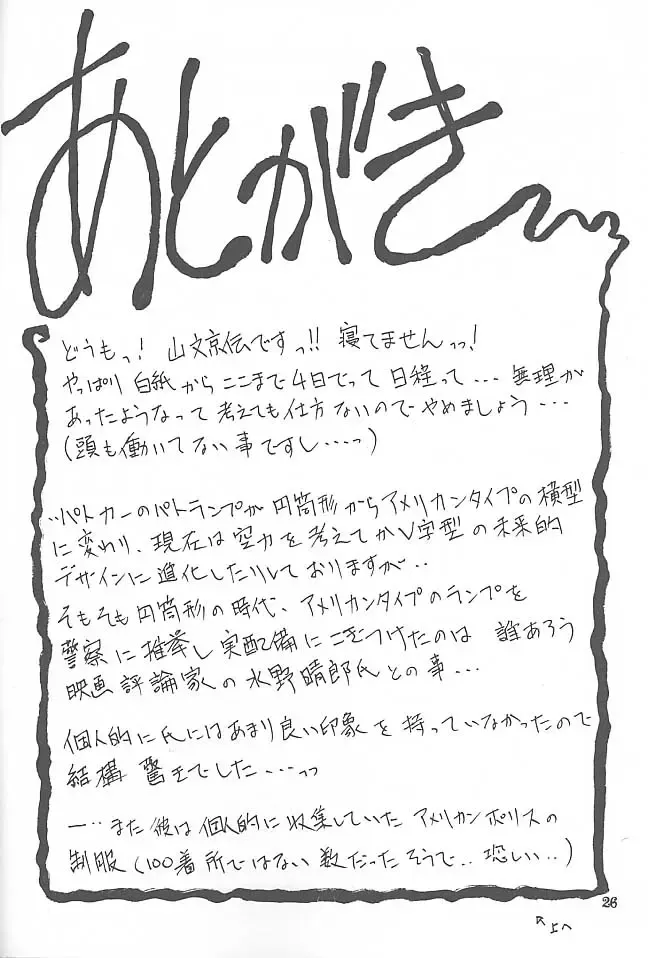 あとがき
どうもっ! 山文京伝ですっ!! 寝てませんっっ!
やっぱり 白紙からここまで4日でって 日程って… 無理が
あったようなって 考えても仕方ないので やめましょう…
(頭も働いてない事ですし…っ)
‥パトカーのパトランプが 円筒形からアメリカンタイプの横型
に変わり、現在は空力を考えてかV字型の未来的
デザインに進化したりしておりますが‥
そもそも円筒形の時代、アメリカンタイプのランプを
警察に推挙し実配備にこぎつけたのは 誰あろう
映画評論家の水野晴郎氏との事…
個人的に氏にはあまり良い印象を持っていなかったので
結構 驚きでした…っっ
ー‥また彼は個人的に収集していた アメリカンポリスの
制服(100着所ではない数だったそうで‥恐しい‥)
26
↖上へ